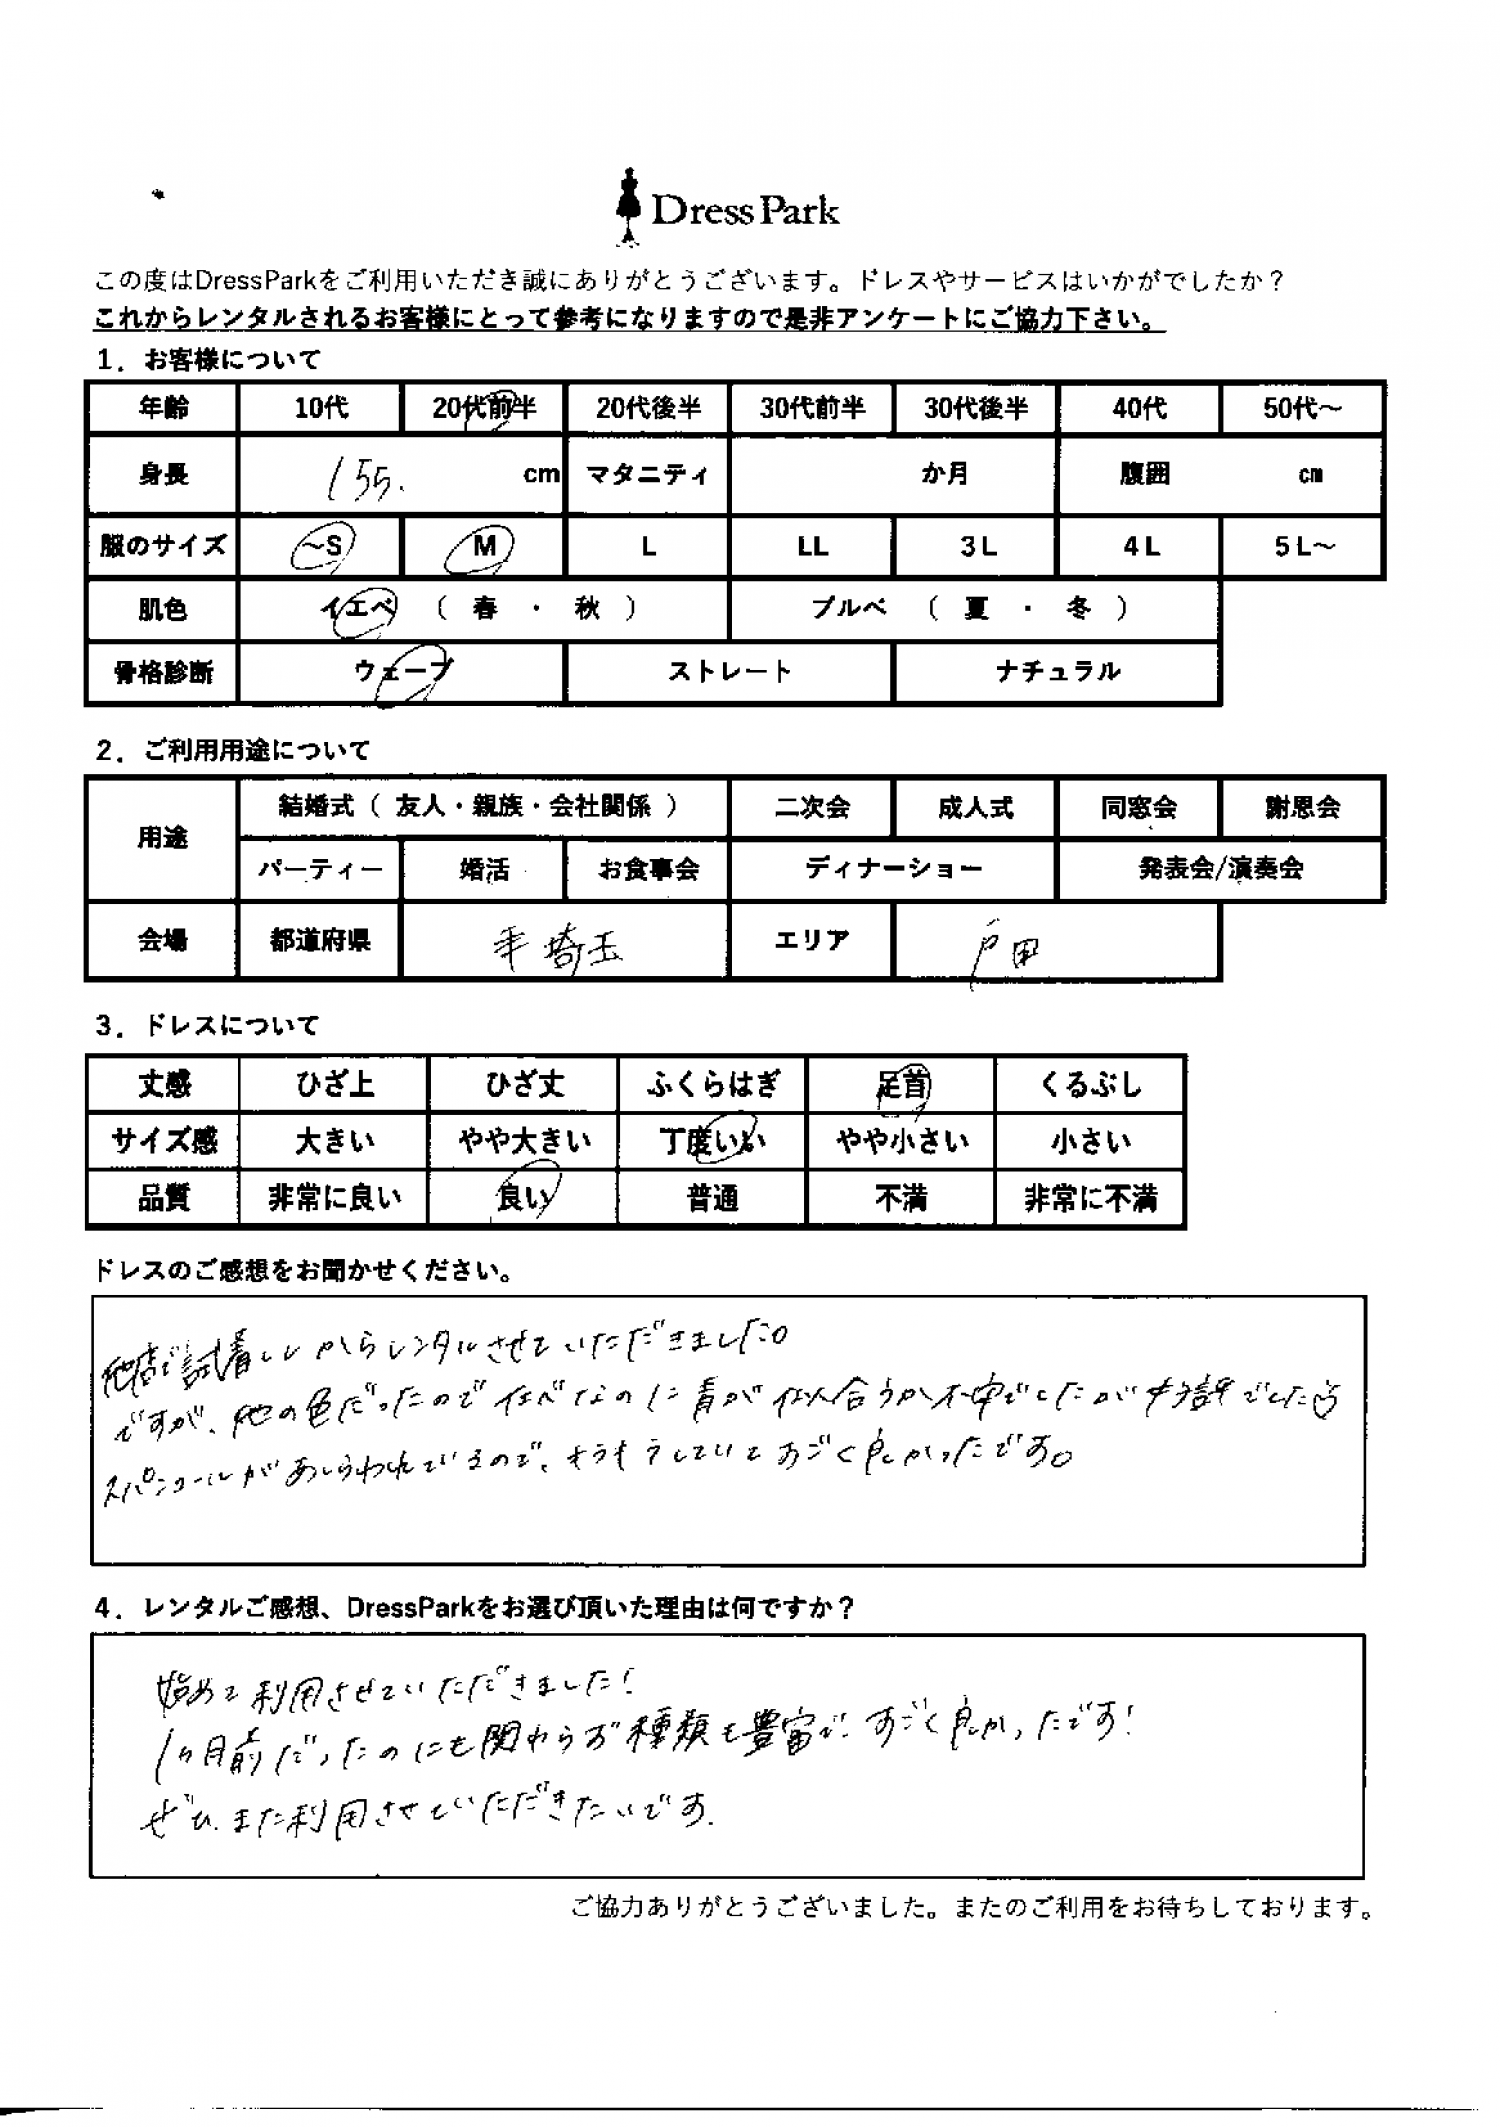 DressPark
この度はDressParkをご利用いただき誠にありがとうございます。ドレスやサービスはいかがでしたか？
これからレンタルされるお客様にとって参考になりますので是非アンケートにご協力下さい。
1．お客様について
年齢 10代 20代前半 20代後半 30代前半 30代後半 40代 50代～
身長 155. cm マタニティ か月 腹囲 ㎝
服のサイズ ～S M L LL 3L 4L 5L～
肌色 イエベ （ 春 ・ 秋 ） ブルベ （ 夏 ・ 冬 ）
骨格診断 ウェーブ ストレート ナチュラル
2．ご利用用途について
用途 結婚式（ 友人・親族・会社関係 ） 二次会 成人式 同窓会 謝恩会
パーティー 婚活 お食事会 ディナーショー 発表会/演奏会
会場 都道府県 埼玉 エリア 戸田
3．ドレスについて
丈感 ひざ上 ひざ丈 ふくらはぎ 足首 くるぶし
サイズ感 大きい やや大きい 丁度いい やや小さい 小さい
品質 非常に良い 良い 普通 不満 非常に不満
ドレスのご感想をお聞かせください。
他店で試着しからレンタルさせていただきました。
ですが、他の色だったのでイエベなのに青が似合うか不安でしたが好評でした
スパンコールがあしらわれているので、キラキラしていてすごく良かったです。
4．レンタルご感想、DressParkをお選び頂いた理由は何ですか？
始めて利用させていただきました！
1ヶ月前だったのにも関わらず種類も豊富で、すごく良かったです！
ぜひ、また利用させていただきたいです.
ご協力ありがとうございました。またのご利用をお待ちしております。